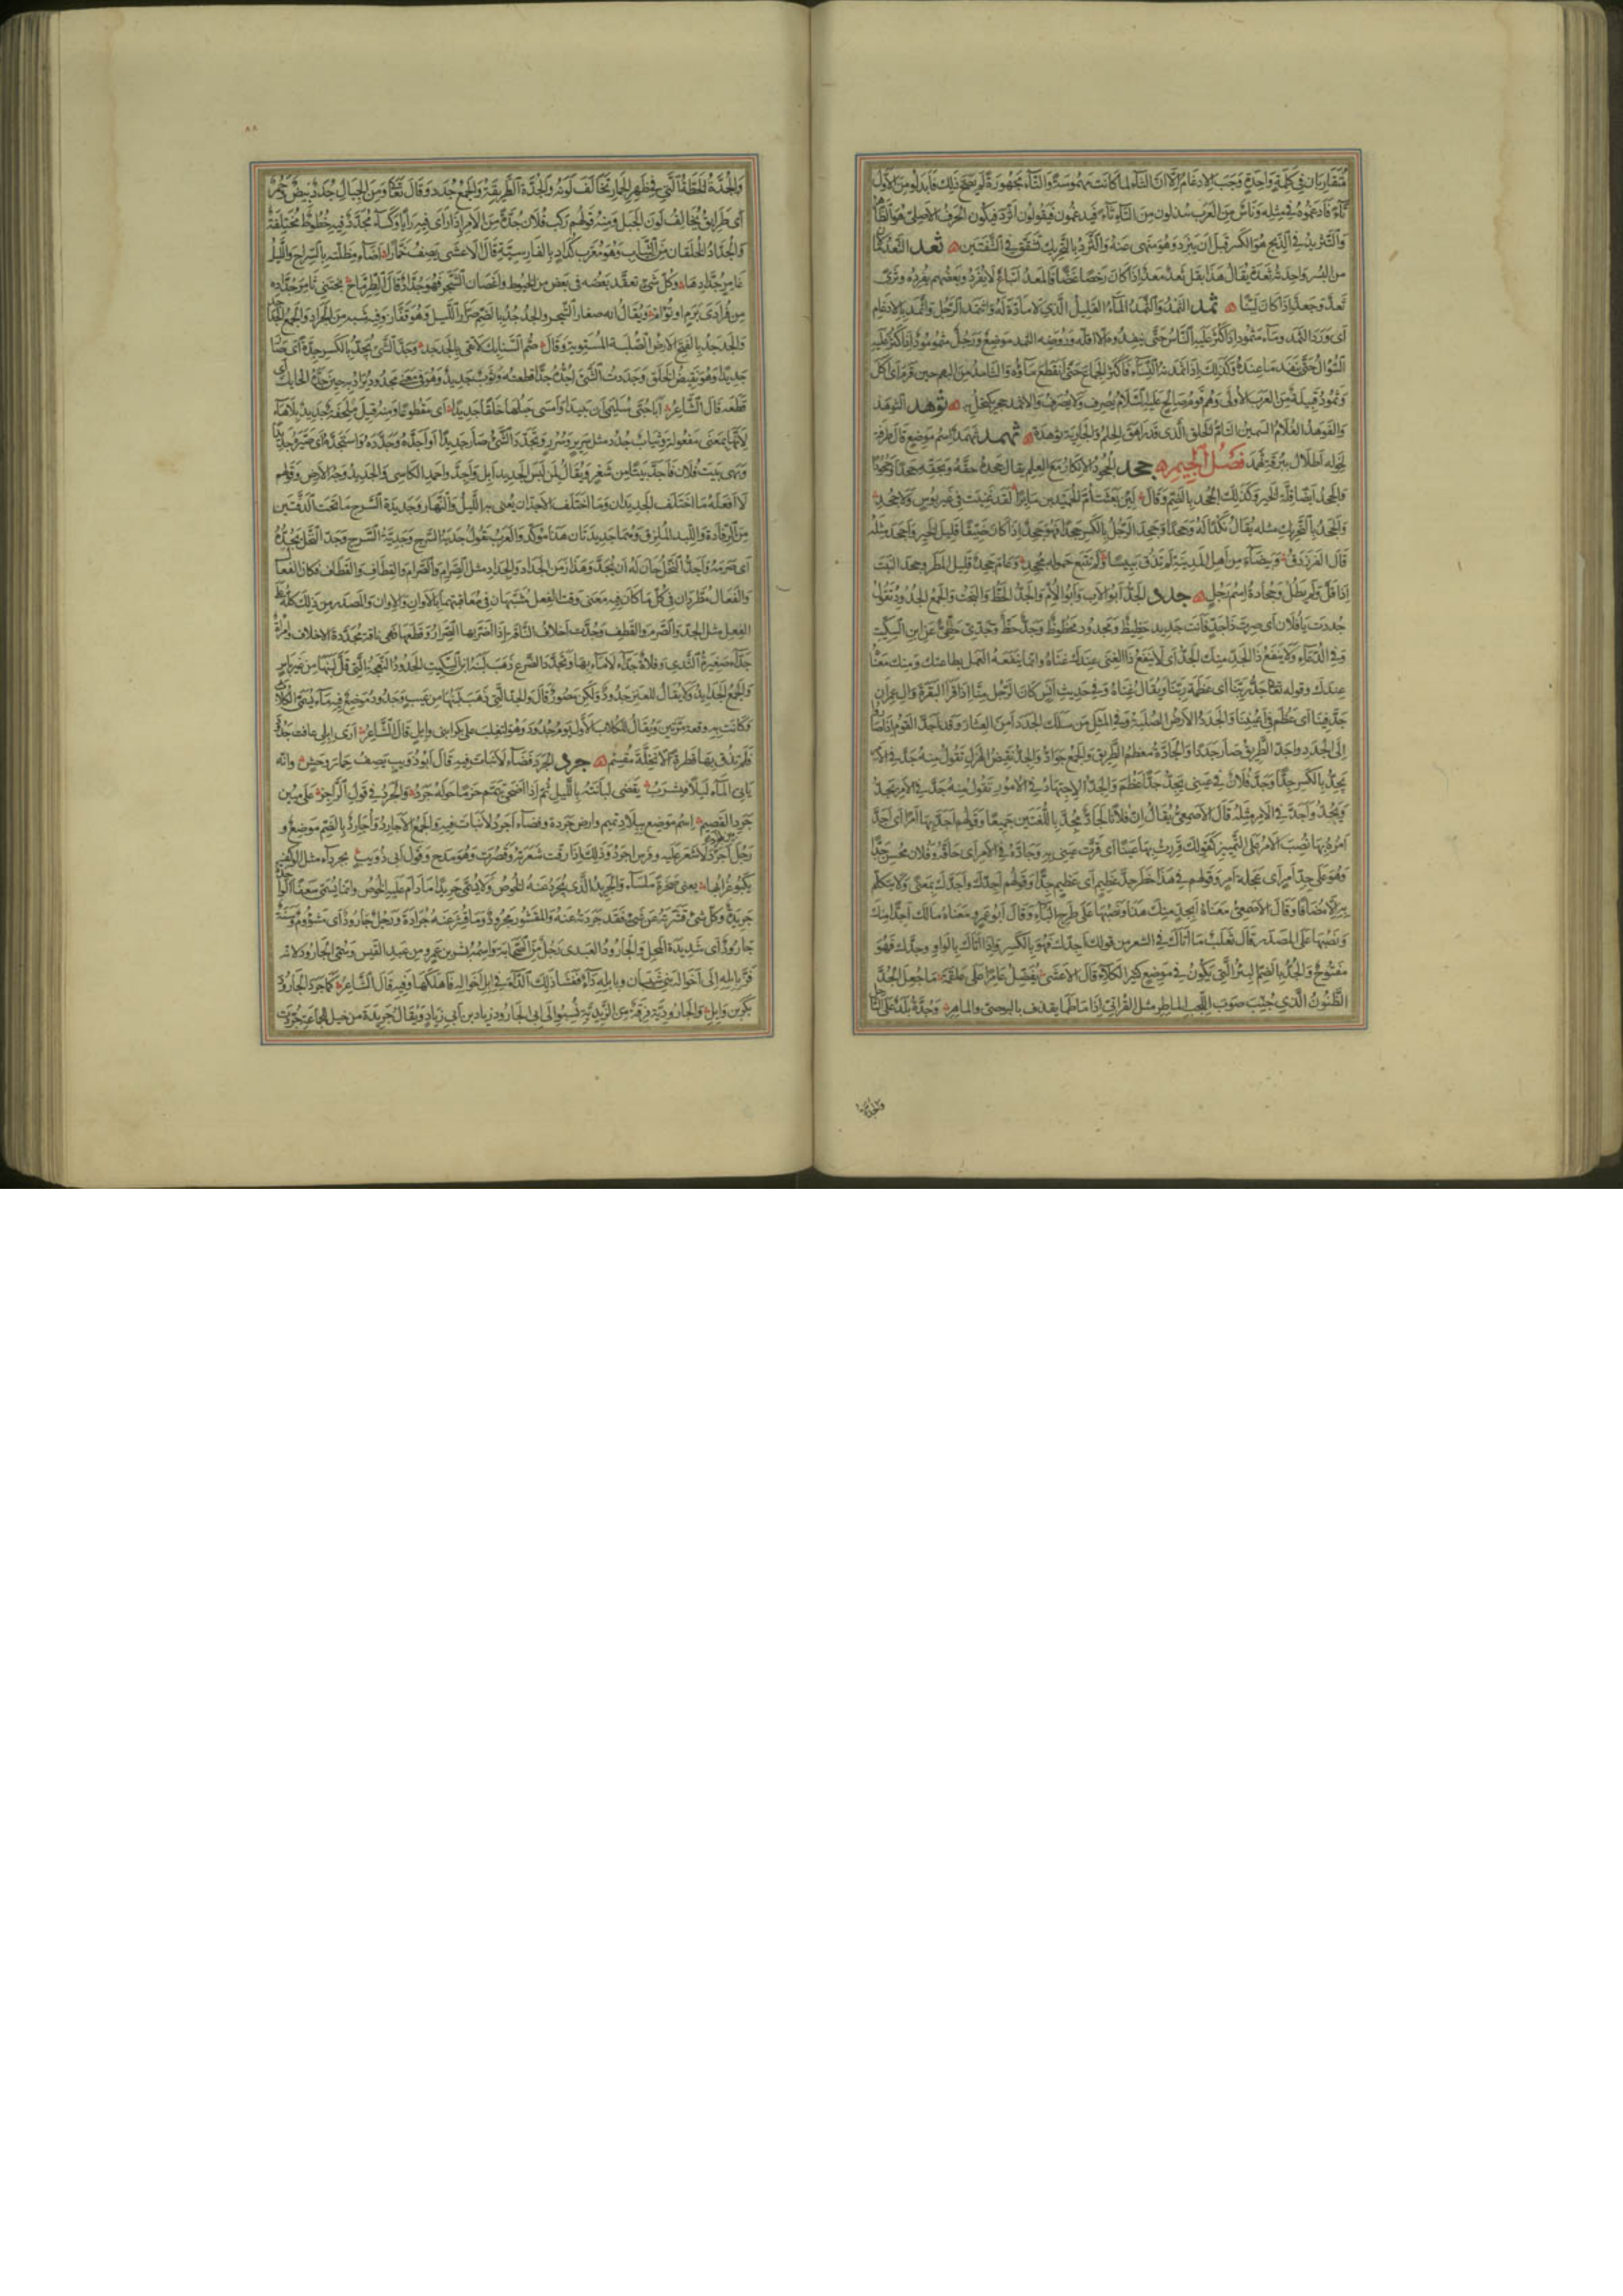 متقاربان في كلمة واحدة وجب الادغام الا ان الثاء لما كانت مهموسة والتاء مجهورة لم يصح ذلك فابدلوا من الاول
تاء فادغموه في مثله وناس من العرب يبدلون من التاء ثاء فيدغمون فيقولون اثرد فيكون الحرف الاصلي هو الظاهر
والتثريد في الذبح هو الكسر قبل ان يبرد وهو منهي عنه والثرد بالتحريك تشقق في الشفتين ثعد الثعد
من البسر واحدته ثعدة يقال هذا بقل ثعد معد اذا كان رخصا غضا والمعد اتباع لا يفرد وبعضهم يفرده وثرى
ثعد وجعد اذا كان لينا ثمد الثمد والثمد الماء القليل الذي لا مادة له واثتمد الرجل واثمد بالادغام
اى ورد الثمد وماء مثمود اذا كثر عليه الناس حتى ينفدوه الا اقله وروضة الثمد موضع ورجل مثمود اذا كثر عليه
السؤال حتى نفد ما عنده وكذلك اذا ثمدته النساء فاكثر الجماع حتى انقطع ماؤه والثامد من البهم حين قرم اى اكل
وثمود قبيلة من العرب الاولى وهم قوم صالح عليه السلام يصرف ولا يصرف والاثمد حجر يكتحل به ثوهد الثوهد
والفوهد الغلام السمين التام الخلق الذى قد راهق الحلم والجارية ثوهدة ثهمد ثهمد اسم موضع قال طرفة
لخولة اطلال ببرقة ثهمد فصل الجيم جحد الجحود الانكار مع العلم يقال جحده حقه وبحقه جحدا وجحودا
والجحد ايضا قلة الخير وكذلك الجحد بالضم وقال لئن بعثت ام الحميدين مايرا لقد غنيت في غير بوس ولا جحد
والجحد بالتحريك مثله يقال نكدا له وجحدا وجحد الرجل بالكسر جحدا فهو جحد اذا كان ضيقا قليل الخير واجحد مثله
قال الفرزدق وبيضاء من اهل المدينة لم تذق بييسا ولم تتبع حمولة مجحد وعام جحد قليل المطر وجحد النبت
اذا قل ولم يطل وجحادة اسم رجل جدد الجد ابو الاب وابو الام والجد الحظ والبخت والجمع الجدود تقول
جددت يا فلان اى صرت ذا جد فانت جديد حظيظ ومجدود محظوظ وجد حظ وجدى حظى عن ابن السكيت
وفي الدعاء ولا ينفع ذا الجد منك الجد اى لا ينفع ذا الغنى عندك غناه وانما ينفعه العمل بطاعتك ومنك معناه
عندك وقوله تعالى جد ربنا اى عظمة ربنا ويقال غناه وفي حديث انس كان الرجل منا اذا قرأ البقرة وال عمران
جد فينا اى عظم في اعيننا والجدد الارض الصلبة وفي المثل من سلك الجدد امن العثار وقد اجد القوم اذا صاروا
الى الجدد واجد الطريق صار جددا والجادة معظم الطريق والجمع جواد والجد نقيض الهزل تقول منه جد في الامر
يجد بالكسر جدا وجد فلان في عينى يجد جدا عظم والجد الاجتهاد في الامور تقول منه جد في الامر يجد
ويجد واجد في الامر مثله قال الاصمعي يقال ان فلانا لجاد مجد باللغتين جميعا وقولهم اجد بها امرا اى اجد
امره بها نصب الامر على التمييز كقولك قررت به عينا اى قرت عينى به وجاده في الامر اى حاقه وفلان محسن جدا
وهو على جد امر اى عجلة امر وقولهم في هذا خطر جد عظيم اى عظيم جدا وقولهم اجدك واجدك بمعنى ولا يتكلم
به الا مضافا وقال الاصمعي معناه ابجد منك هذا ونصبها على طرح الباء وقال ابو عمرو معناه مالك اجدا منك
ونصبها على المصدر قال ثعلب ما اتاك في الشعر من قولك اجدك فهو بالكسر واذا اتاك بالواو وجدك فهو
مفتوح والجد بالضم البئر التي تكون في موضع كثير الكلاء قال الاعشى يفضل عامرا على علقمة ما جعل الجد
الظنون الذي جنب صوب اللجب الماطر مثل الفراتى اذا ما طما يقذف بالبوصى والماهر وجدة بلد على الساحل
والجدة
٨٨
والجدة الخطة التي في ظهر الحمار تخالف لونه والجدة الطريقة والجمع جدد وقال تعالى ومن الجبال جدد بيض وحمر
اى طرايق تخالف لون الجبل ومنه قولهم ركب فلان جدة من الامر اذا راى فيه رايا وكساء مجدد فيه خطوط مختلفة
والجداد الخلقان من الثياب وهو معرب كداد بالفارسية قال الاعشى يصف خمارا اضاء مظلته بالسراج والليل
غامر جدادها وكل شيء تعقد بعضه في بعض من الخيوط واغصان الشجر فهو جداد قال الطرماح تجتنى ثامر جداده
من فرادى برم او تؤام ويقال انه صغار الشجر والجدجد بالضم صرار الليل وهو قفاز وفيه شبه من الجراد والجمع الجداجد
والجدجد بالفتح الارض الصلبة المستوية وقال صم السنابك لا تقى بالجدجد وجد الشىء يجد بالكسر جدة اى صار
جديدا وهو نقيض الخلق وجددت الشىء اجده جدا قطعته وثوب جديد وهو في معنى مجدود يراد به حين جده الحايك اى
قطعه قال الشاعر ابى حبى سليمى ان يبيدا وامسى حبلها خلقا جديدا اى مقطوعا ومنه قيل ملحفة جديد بلا هاء
لانها بمعنى مفعولة وثياب جدد مثل سرير وسرر وتجدد الشىء صار جديدا واجده وجدده واستجده اى صيره جديدا
وبهى بيت فلان فاجد بيتا من شعر ويقال لمن لبس الجديد ابل واجد واحمد الكاسى والجديد وجه الارض وقولهم
لا افعله ما اختلف الجديدان وما اختلف الاجدان يعنى به الليل والنهار وجديدة السرج ما تحت الدفتين
من الرفادة واللبد الملزق وهما جديدتان هذا مولد والعرب تقول جدية السرج وجدية السرج وجد النخل يجده
اى صرمه واجد النخل حان له ان يجد وهذا زمن الجداد والجداد مثل الصرام والصرام والقطاف والقطاف فكان الفعال
والفعال مطردان في كل ما كان فيه معنى وقت الفعل مشبهان في معاقبتهما بالاوان والاوان والمصدر من ذلك كله على
الفعل مثل الجد والصرم والقطف وجدت اخلاف الناقة اذا اضر بها الصرار وقطعها فهى ناقة مجددة الاخلاف وامرأة
جداء صغيرة الثدى وفلاة جداء لا ماء بها وتجدد الضرع ذهب لبنه ابن السكيت الجدود النعجة التي قل لبنها من غير باس
والجمع الجدايد ولا يقال للعنز جدود ولكن مصور قال والجداء التي ذهب لبنها من عيب وجدود موضع فيه ماء يسمى الكلاب
وكانت به وقعة مرتين ويقال للكلاب الاول يوم جدود وهو لتغلب على بكر ابن وايل قال الشاعر ارى ابلى عافت جدود
فلم تذق بها قطرة الا تحلة مقسم جرد الجرد فضاء لا نبات فيه قال ابو ذويب يصف حمار وحش وانه
ياتى الماء ليلا فيشرب يقضى لبانته بالليل ثم اذا اضحى تيمم حزما حوله جرد والجرد في قول الراجز على مبين
جرد القصيم اسم موضع ببلاد تميم وارض جردة وفضاء اجرد لا نبات فيه والجمع الاجارد واجارد بالضم موضع و
رجل اجرد لا شعر عليه وفرس اجرد وذلك اذا رقت شعرته وقصرت وهو مدح وقول ابى ذويب بجرداء مثل الوكف
يكبو غرابها يعنى صخرة ملساء والجريد الذي يجرد عنه الخوص ولا يسمى جريدا ما دام عليه الخوص وانما يسمى سعفا الواحدة
جريدة وكل شىء قشرته عن شىء فقد جردته عنه والمقشور مجرود وما قشر عنه جرادة ورجل جارود اى مشؤوم وسنة
جارود اى شديدة المحل والجارود العبدى رجل من الصحابة واسمه بشر بن عمرو من عبد القيس وسمى الجارود لانه
فر بابله الى اخواله بنى شيبان وبابله داء ففشا ذلك الداء في ابل اخواله فاهلكها وفيه قال الشاعر كما جرد الجارود
بكر بن وايل والجارودية فرقة من الزيدية نسبوا الى ابى الجارود زياد بن ابى زياد ويقال جريدة من خيل لجماعة جردت